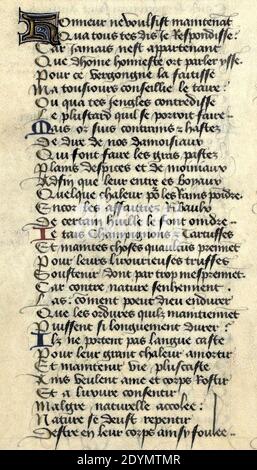 Honneur ne voulsist maintenant
Qua tous tes dis je Respondisse
Car jamais nest appartenant
Que dhome honneste ort parler ysse
Pour ce vergongne la faitisse
Ma tousjours conseillie le taire
Ou qua tes jengles contredisse
Le plustard quil se porroit faire
Mais or suis contrains & hastez
De dire de nos damoisiaux
Qui font faire les gras pastez
Plains despices et de moiniaux
Adfin que leur entre es boyaux
Quelque chaleur pour les rains poindre
Encor les affaittiez Ribaux
De certain huille se font oindre
Itans Champignons & Tartuffes
Et maintes choses quailleurs prennent
Pour leurs livourieuses truffes
Soustenir dont par trop mesprennent
Car contre nature senhennent
Las coment poeut dieu endurer
Que les ordures quilz maintiennent
Puissent si longuement durer
Ilz ne portent pas langue caste
Pour leur grant chaleur amortir
Et maintenir vie plus caste
Ains veulent ame et corps Rostir
Et a livure consentir
Malgre naturelle accolee
Nature se deust repentir
Destre en leur corps ainsy foulee
alamy
Image ID: 2DYMTMR
www.alamy.com